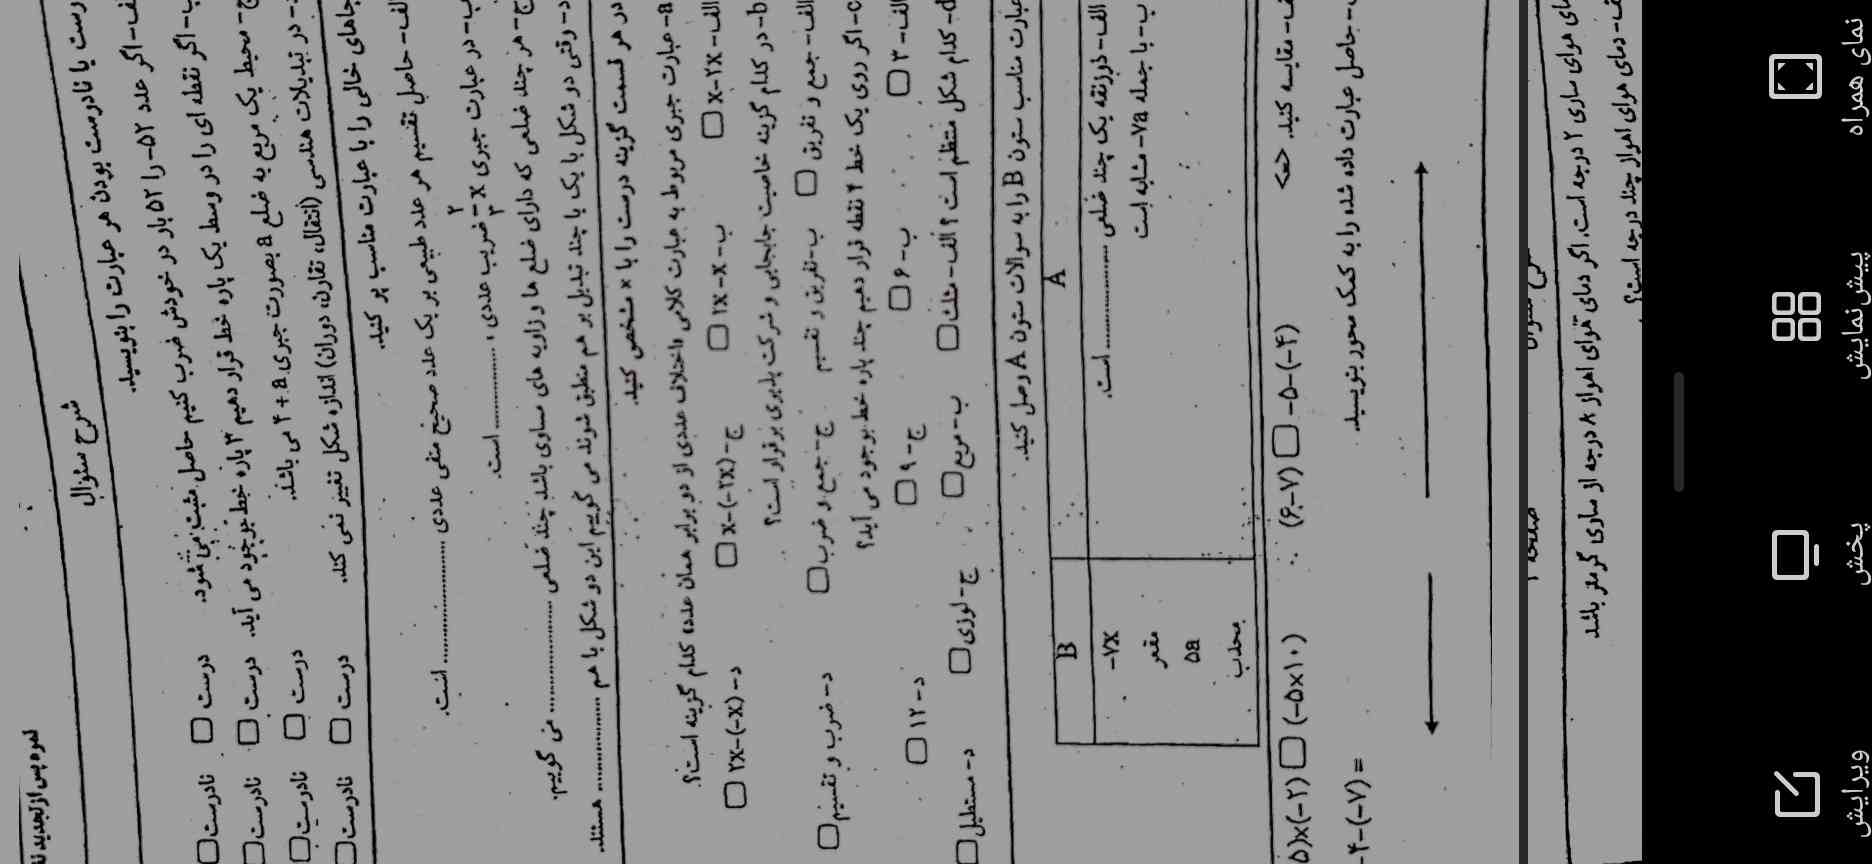 نمره پس از تجدید
شرح سئوال
درست یا نادرست بودن هر عبارت را بنویسید.
الف- اگر عدد ۵۲- را ۵۲ بار در خودش ضرب کنیم حاصل مثبت می شود. درست نادرست
ب- اگر نقطه ای را در وسط یک پاره خط قرار دهیم ۳ پاره خط بوجود می آید. درست نادرست
ج- محیط یک مربع به ضلع a بصورت جبری ۴+a می باشد. درست نادرست
د- در تبدیلات هندسی (انتقال، تقارن، دوران) اندازه شکل تغییر نمی کند. درست نادرست
جاهای خالی را با عبارت مناسب پر کنید.
الف- حاصل تقسیم هر عدد طبیعی بر یک عدد صحیح منفی عددی .................. است.
ب- در عبارت جبری x -۲/۳ ضریب عددی، .................. است.
ج- هر چند ضلعی که دارای ضلع ها و زاویه های مساوی باشد چند ضلعی .................. می گوییم.
د- وقتی دو شکل با یک یا چند تبدیل بر هم منطبق شوند می گوییم این دو شکل با هم .................. هستند.
در هر قسمت گزینه درست را با x مشخص کنید.
a- عبارت جبری مربوط به عبارت کلامی «اختلاف عددی از دو برابر همان عدد» کدام گزینه است؟
الف- x-۲x ب- ۲x-x ج- x-(-۲x) د- ۲x-(-x)
b- در کدام گزینه خاصیت جابجایی و شرکت پذیری برقرار است؟
الف- جمع و تفریق ب- تفریق و تقسیم ج- جمع و ضرب د- ضرب و تقسیم
c- اگر روی یک خط ۴ نقطه قرار دهیم چند پاره خط بوجود می آید؟
الف- ۳ ب- ۶ ج- ۹ د- ۱۲
d- کدام شکل منتظم است؟ الف- مثلث ب- مربع ج- لوزی د- مستطیل
عبارت مناسب ستون B را به سوالات ستون A وصل کنید.
A B
الف- ذوزنقه یک چند ضلعی .................. است.
ب- با جمله -۷a مشابه است
-۷x
مقعر
۵a
محدب
الف- مقایسه کنید. <=>
(۶-۷) □ -۵-(-۴)
۵)x(-۲) □ (-۵x۱۰)
ب- حاصل عبارت داده شده را به کمک محور بنویسید.
-۴-(-۷) =
الف- دمای هوای اهواز چند درجه است؟
دمای هوای ساری ۲ درجه است. اگر دمای هوای اهواز ۸ درجه از ساری گرمتر باشد
نمای همراه
پیش‌نمایش
پخش
ویرایش